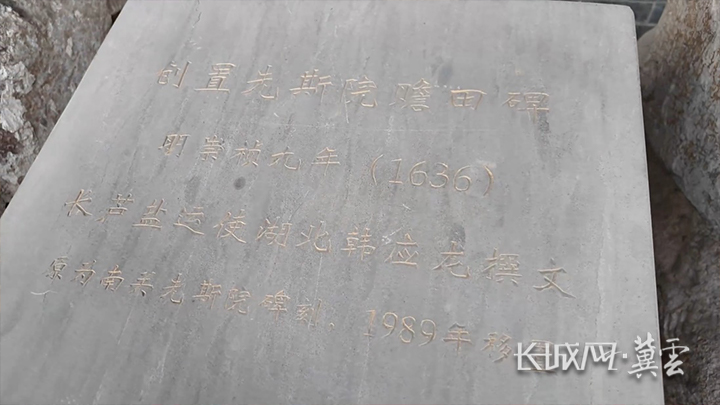 创置先斯院赡田碑
明崇祯九年（1636）
长芦盐运使湖北韩应龙撰文
原为南关先斯院碑刻，1989年移
长城网·冀云